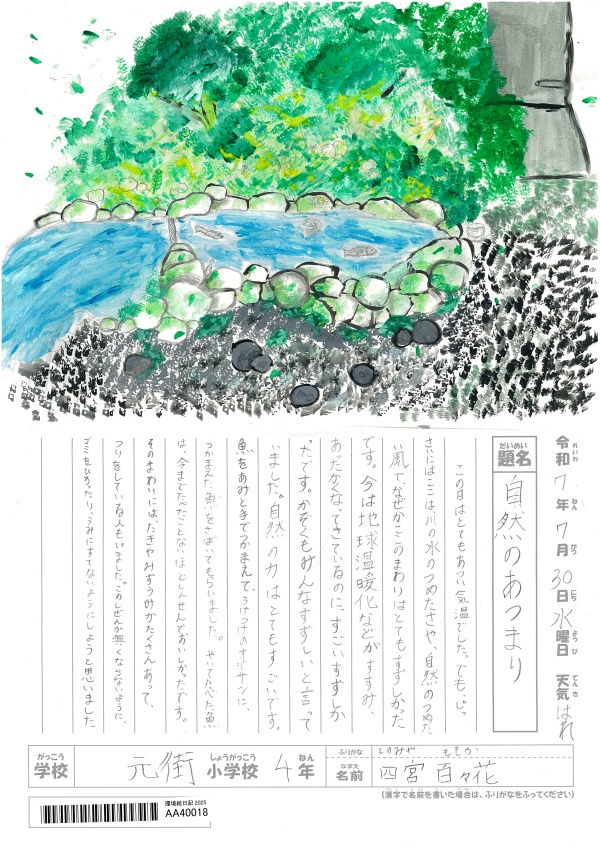 令和7年7月30日水曜日 天気はれ
れいわ ねん がつ にち ようび てんき
だいめい
題名 自然のあつまり
この日はとてもあつい気温でした。でも、じっ
さいにはここは、川の水のつめたさや、自然のつめた
い風でなぜかここのまわりはとてもすずしかった
です。今は地球温暖化などがすすみ、
あたたかくなってきているのに、すごいすずしか
ったです。かぞくもみんなすずしいと言って
いました。自然の力はとてもすごいです。
魚をあみと手でつかまえて、うけつけのオジサンに、
つかまえた魚をさばいてもらいました。やいてたべた魚
は、今までたべたことないほどしんせんでおいしかったです。
そのまわりには、たきやみずうみがたくさんあって、
つりをしている人もいました。このしぜんが無くならないように、
ゴミをひろったり、うみにすてないようにしようと思いました
がっこう しょうがっこう ねん
学校 元街 小学校 4年
ふりがな しのみや ももか
なまえ
名前 四宮 百々花
(漢字で名前を書いた場合は、ふりがなをふってください)
環境絵日記 2025
AA40018